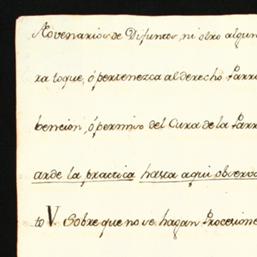 Novenarios de Difuntos, ni otro algun
ra toque, ó pertenezca al derecho Parro
bencion, ó permiso del Cura de la Parr
arde la practica hasta aqui observa
to V. Sobre que no se hagan Procesione